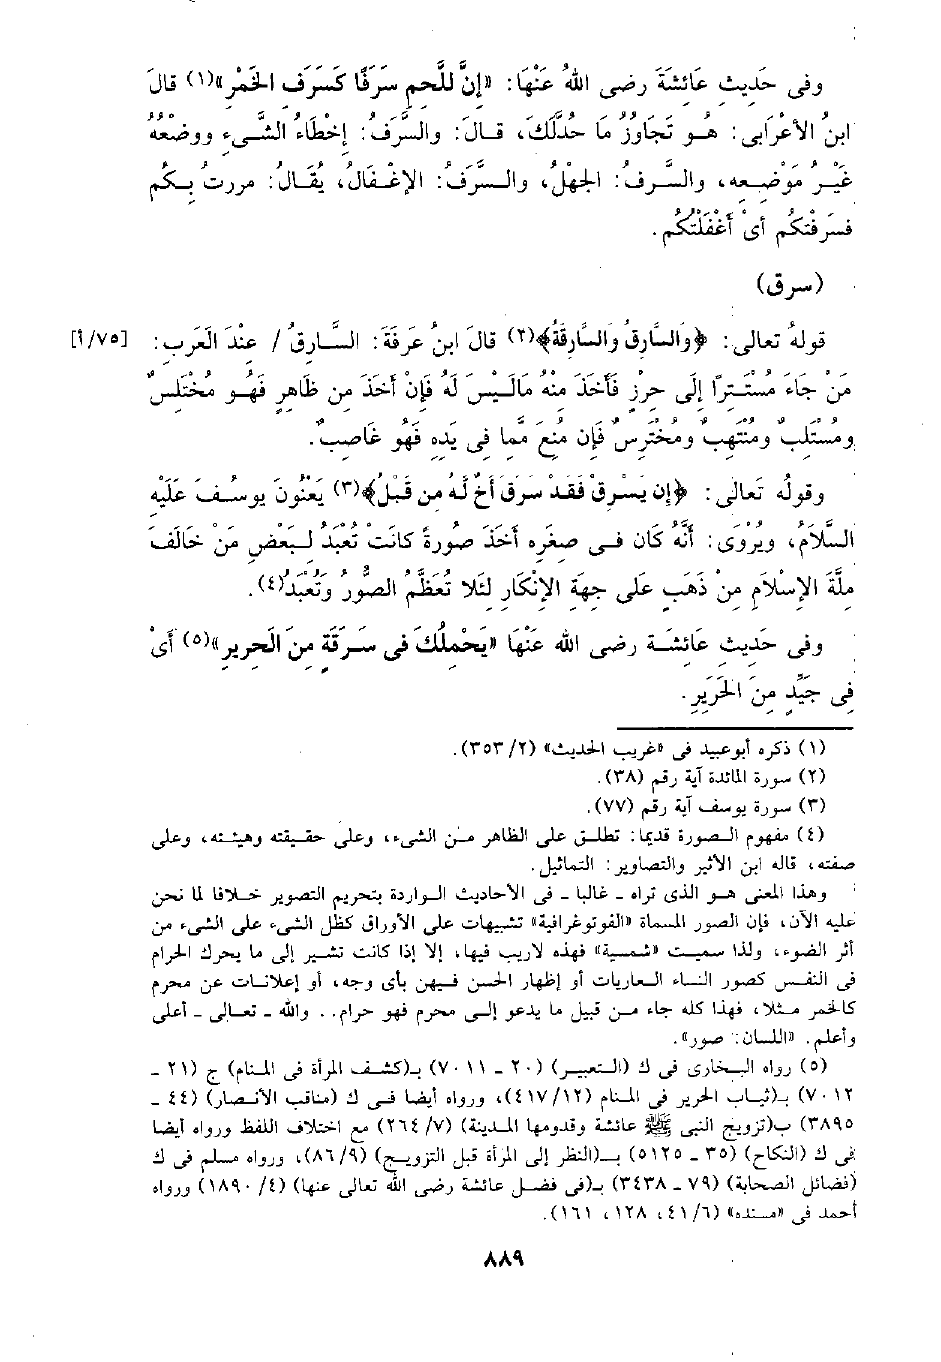 وفى حَدِيث عَائشَةَ رضى اللهُ عَنْهَا: «إنَّ للَّحمِ سَرَفًا كَسَرَفِ الخَمْرِ»(١) قالَ
ابنُ الأعْرَابى: هُو تَجَاوُزُ ما حُدَّلَكَ، قالَ: والسَّرَفُ: إخْطَاءُ الشَّىءِ ووضْعُهُ
غَيْرُ مَوْضِعِه، والسَّرفُ: الجهْلُ، والسَّرَفُ: الإغْفَالُ، يقَالُ: مررتُ بِكُم
فسَرَفْتكُم أىْ أَغْفَلْتُكُم.
(سرق)
قولهُ تعالى: ﴿وَالسَّارِقُ والسَّارِقَةُ﴾(٢) قالَ ابنُ عَرفَةَ: السَّارِقُ / عنْدَ العَربِ: [٧٥/أ]
مَنْ جَاءَ مسْتَتِرًا إلَى حرْزٍ فَأخَذَ منْهُ مَالَيْسَ لَهُ فَإنْ أخَذَ من ظَاهرٍ فَهُو مخْتَلسٌ
ومُسْتَلبٌ ومنْتَهبٌ ومُحْتَرسٌ فإن مُنعَ ممَّا فى يَدِه فَهو غَاصبٌ.
وقولُه تَعَالَى: ﴿إن يَسْرِقْ فَقَدْ سَرَقَ أخٌ لَّهُ مِن قَبْلُ﴾(٣) يَعْنُونَ يوسُفَ عَلَيْهِ
السَّلاَمُ، ويُرْوَى: أنَّهُ كان فى صغَرِه أخَذَ صُورَةً كانَتْ تُعْبَدُ لِبَعْضِ مَنْ خَالَفَ
مِلَّةَ الإسْلَامِ مِنْ ذَهَبٍ عَلَى جِهَةِ الإنْكَارِ لئَلا تُعَظَّمُ الصُّورُ وتُعْبَدُ(٤).
وفى حَدِيث عَائشَة رضى الله عَنْهَا «يَحْمِلُكِ فى سَرقَةٍ مِنَ الحَرِيرِ»(٥) أىْ
فِى جَيِّدٍ مِنَ الحَرَيرِ.
(١) ذكره أبوعبيد فى «غريب الحديث» (٢/ ٣٥٣).
(٢) سورة المائدة آية رقم (٣٨).
(٣) سورة يوسف آية رقم (٧٧).
(٤) مفهوم الصورة قديما: تطلق على الظاهر من الشىء، وعلى حقيقته وهيئته، وعلى
صفته، قاله ابن الأثير والتصاوير: التماثيل.
وهذا المعنى هو الذى تراه ـ غالبا ـ فى الأحاديث الواردة بتحريم التصوير خلافا لما نحن
عليه الآن، فإن الصور المسماة «الفوتوغرافية» تشبيهات على الأوراق كظل الشىء على الشىء من
أثر الضوء، ولذا سميت «شمسية» فهذه لاريب فيها، إلا إذا كانت تشير إلى ما يحرك الحرام
فى النفس كصور النساء العاريات أو إظهار الحسن فيهن بأى وجه، أو إعلانات عن محرم
كالخمر مثلا، فهذا كله جاء من قبيل ما يدعو إلى محرم فهو حرام.. والله ـ تعالى ـ أعلى
وأعلم. «اللسان: صور».
(٥) رواه البخارى فى ك (التعبير) (٢٠ ـ ٧٠١١) بـ(كشف المرأة فى المنام) ح (٢١ ـ
٧٠١٢) بـ(ثياب الحرير فى المنام (٤١٧/١٢)، ورواه أيضا فى ك (مناقب الأنصار) (٤٤ ـ
٣٨٩٥) ب(تزويج النبى ﷺ عائشة وقدومها المدينة) (٧/ ٢٦٤) مع اختلاف اللفظ ورواه أيضا
فى ك (النكاح) (٣٥ ـ ٥١٢٥) بـ(النظر إلى المرأة قبل التزويج) (٨٦/٩)، ورواه مسلم فى ك
(فضائل الصحابة) (٧٩ ـ ٣٤٣٨) بـ(فى فضل عائشة رضى الله تعالى عنها) (٤/ ١٨٩٠) ورواه
أحمد فى «مسنده» (٤١/٦، ١٢٨، ١٦١).
٨٨٩